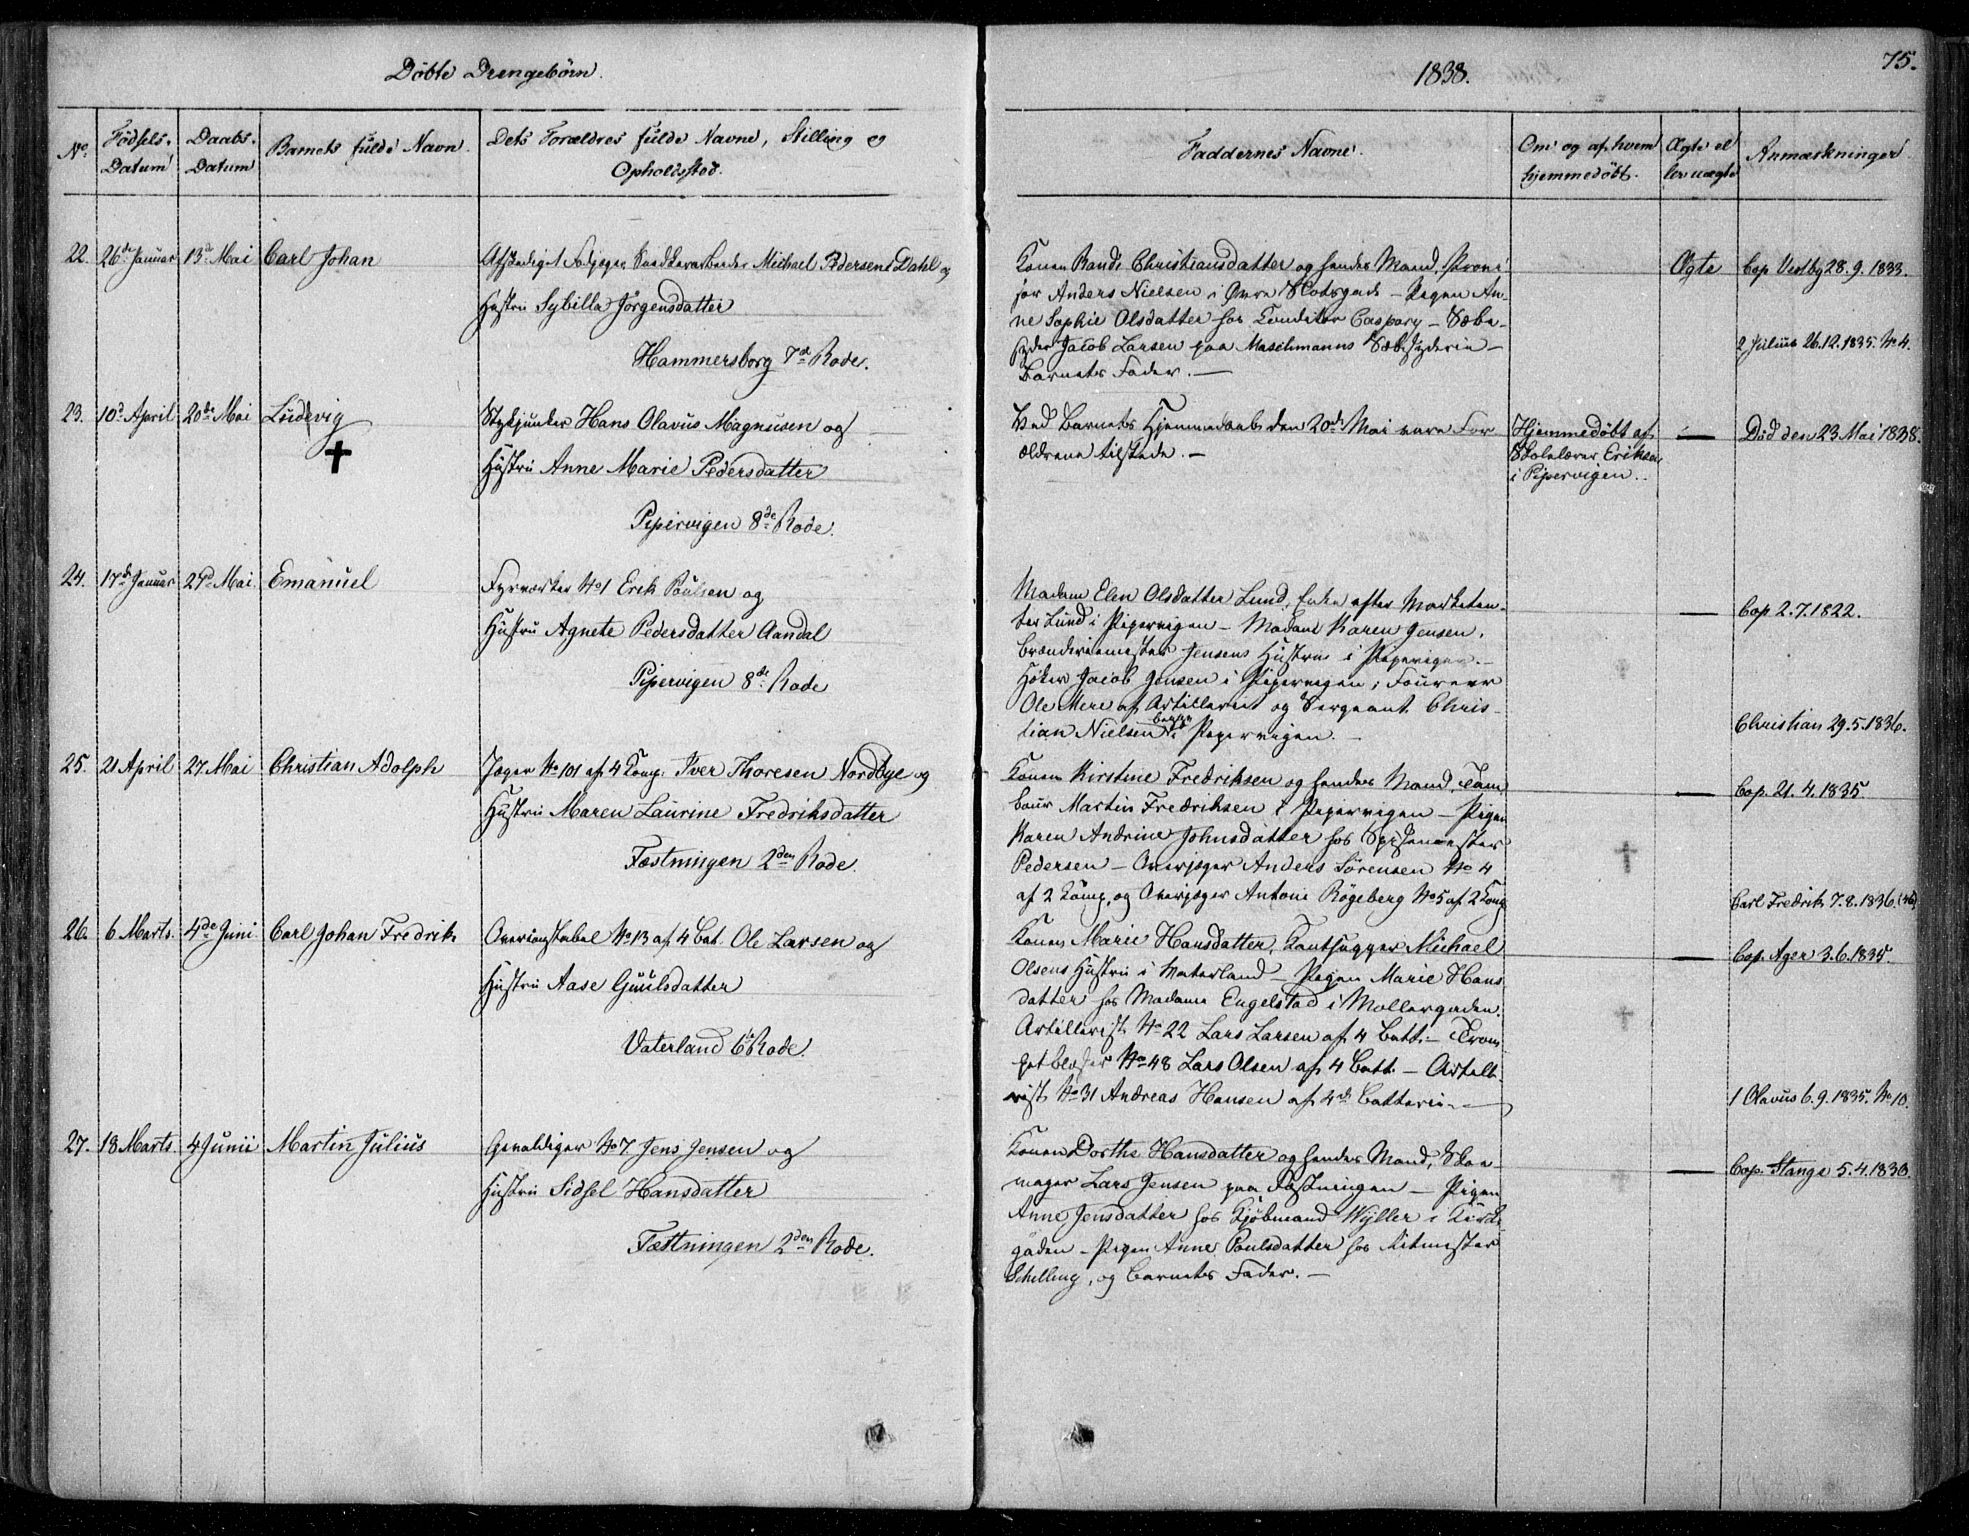 Döbte Drengebörn.
1838.
75.
No.
Födsels-
Datum
Daabs-
Datum
Barnets fulde Navn.
Dets Forældres fulde Navne, Stilling og
Opholdssted.
Faddernes Navne.
Om og af hvem
hjemmedöbt.
Ægte el
ler uægte
Anmærkninger
22. 26de Januar 13de Mai Carl Johan
Afskediget Michael Pedersen Dahl og
Hustru Sybilla Jörgensdatter
Hammersborg 7de Rode.
Konen Christiansdatter og hendes Mand,
Anders Nielsen i Övre Slotsgade – Pigen An-
ne Sophie Olsdatter hos Conditor Caspary – Sæbe-
syder Jacob Larsen paa Maschmanns Sæbesyderie –
Barnets Fader. –
Ægte
Cop Vestby 28.9.1833.
2 Julius 26.12.1835. No 4.
23. 10de April 20de Mai Ludevig
Stykjunker Hans Olavus Magnusen og
Hustru Anne Marie Pedersdatter
Pipervigen 8de Rode.
Ved Barnets Hjemmedaab den 20de Mai vare For-
ældrene tilstede. –
Hjemmedöbt af
Skolelærer Eriksen
i Pipervigen.
Död den 23 Mai 1838.
24. 17de Januar Mai Emanuel
Fyrværker No 1 Erik Poulsen og
Hustru Agnete Pedersdatter Aandal
Pipervigen 8de Rode
Madam Elen Olsdatter Lund, Enke efter Marketen-
ter Lund i Pipervigen – Madam Karen Jensen,
Brænderiemester Jensens Hustru i Pipervigen. –
Höker Jacob Jensen i Pipervigen, Foureer
Ole Mere af Artilleriet og Sergeant Chris-
tian Nielsen i Pipervigen. –
Cop 2.7.1822.
Christian 29.5.1836.
25. 21 April 27 Mai Christian Adolph
Jæger No 101 af 4 Comp. Iver Thoresen Nordbye og
Hustru Maren Laurine Fredriksdatter
Fæstningen 2den Rode.
Konen Kirstine Fredriksen og hendes Mand, Tam
bour Martin Fredriksen i Pipervigen – Pigen
Karen Andrine Johnsdatter hos Spisemester
Pedersen – Overjæger Anders Sörensen No 4
af 2 Comp. og Overjæger Antoni Rögeberg No 5 af 2 Comp
Cop. 21.4.1835.
Carl Fredrik 7.8.1836.
26. 6 Marts. 4de Juni Carl Johan Fredrik
Overconstabel No 13 af 4 Bat. Ole Larsen og
Hustru Aase Guulsdatter
Vaterland 6te Rode.
Konen Marie Hansdatter, Michael
Olsens Hustru i Vaterland – Pigen Marie Hans
datter hos Madame Engelstad i Möllergaden.
Artillerist No 22 Lars Larsen af 4 Batt. – Trom
petblæser No 48 Lars Olsen af 4 Batt. – Artille
rist No 31 Andreas Hansen af 4de Batterie. –
Cop. Ager 3.6.1835.
1 Olavus 6.9.1835. No 10.
27. 18 Marts. 4 Junii Martin Julius
Gevaldiger No 7 Jens Jensen og
Hustru Sidsel Hansdatter
Fæstningen 2den Rode.
Konen Dorthe Hansdatter og hendes Mand, Skoe-
mager Lars Jensen paa Fæstningen – Pigen
Anne Jensdatter hos Kjöbmand Wyller i Kirke
gaden – Pigen Anne Poulsdatter hos Ritmester
Schelling, og Barnets Fader. –
Cop. Stange 5.4.1830.